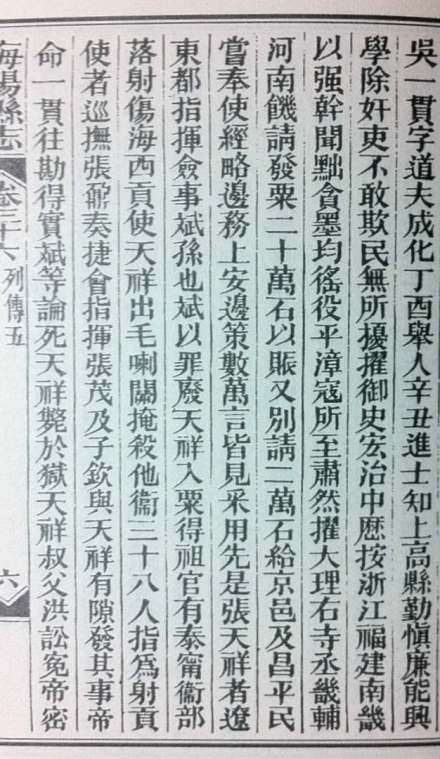 吳一貫字道夫成化丁酉舉人辛丑進士知上高縣勤慎廉能興
學除奸吏不敢欺民無所擾擢御史宏治中歷按浙江福建南畿
以强幹聞黜貪墨均徭役平漳寇所至肅然擢大理右寺丞畿輔
河南饑請發粟二十萬石以賑又別請二萬石給京邑及昌平民
嘗奉使經略邊務上安邊策數萬言皆見采用先是張天祥者遼
東都指揮僉事斌孫也斌以罪廢天祥入粟得祖官有泰甯衞部
落射傷海西貢使天祥出毛喇關掩殺他衞三十八人指為射貢
使者巡撫張鼐奏捷會指揮張茂及子欽與天祥有隙發其事帝
命一貫往勘得實斌等論死天祥斃於獄天祥叔父洪訟冤帝密
海陽縣志
卷三十六
列傳五
六